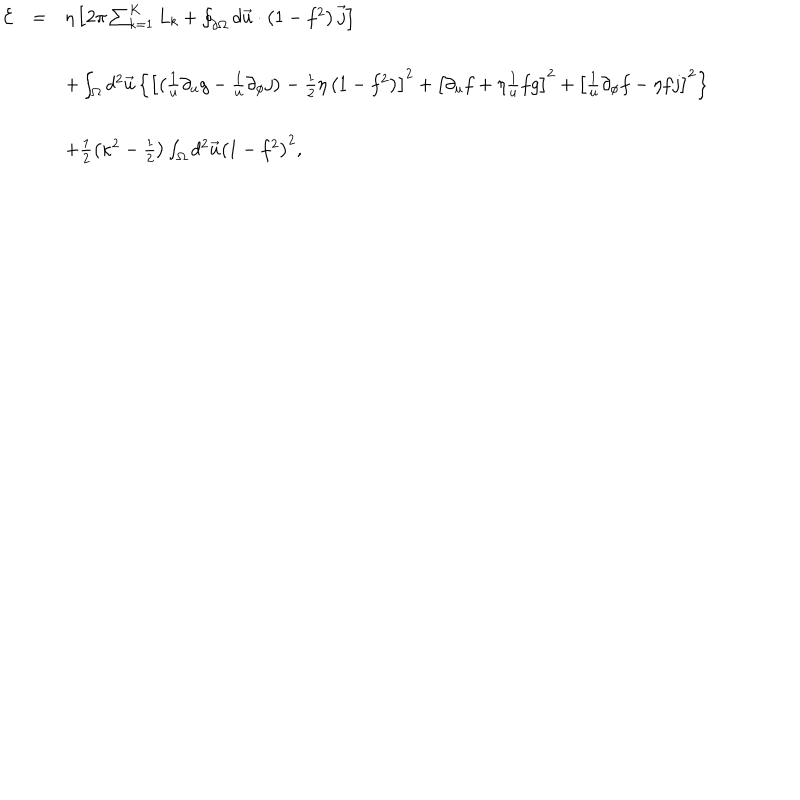 \mathcal{E} = \eta \left[ 2\pi \sum_{k=1}^{K} L_k + \oint_{\partial\Omega} d\vec{u} \cdot (1 - f^2) \, \vec{j} \right]
+ \int_{\Omega} d^2\vec{u} \left\{ \left[ (\frac{1}{u} \partial_u g - \frac{1}{u} \partial_\phi j) - \frac{1}{2} \eta \, (1 - f^2) \right]^2 + \left[ \partial_u f + \eta \frac{1}{u} f g \right]^2 + \left[ \frac{1}{u} \partial_\phi f - \eta f j \right]^2 \right\}
+ \frac{1}{2} (\kappa^2 - \frac{1}{2}) \int_{\Omega} d^2\vec{u} (1 - f^2)^2,